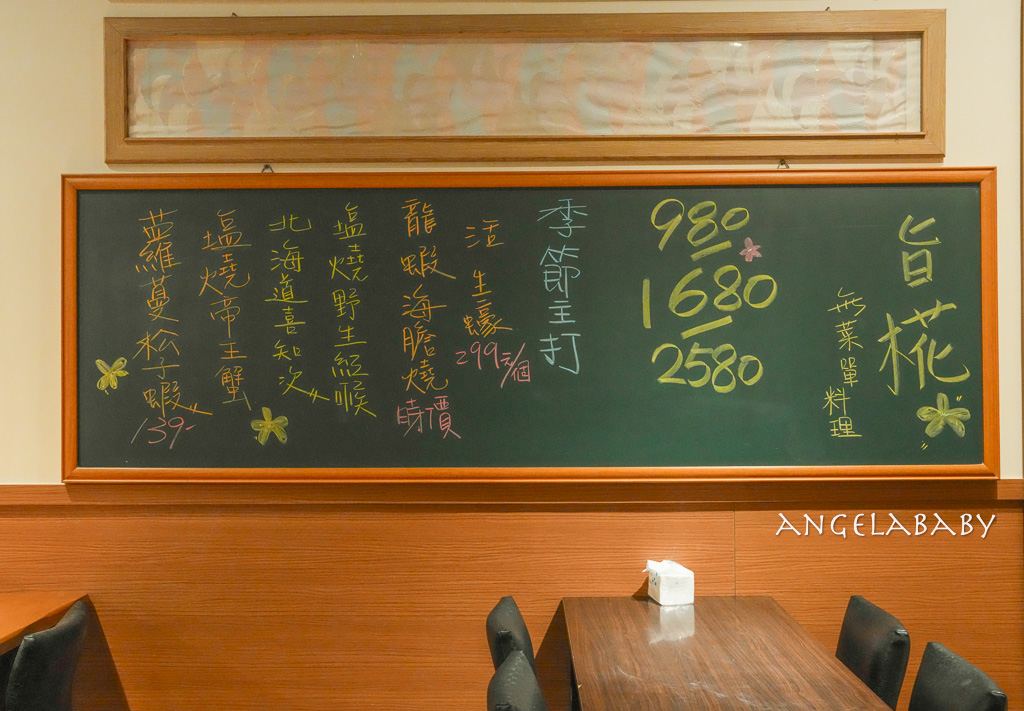 旨椛
無菜單料理
980
1680
2580
季節主打
活生蠔
299元/個
龍蝦海膽燒
時價
塩燒野生紅喉
北海道喜知次
塩燒帝王蟹
蓝羅蔓松子蝦
139-
ANGELABABY